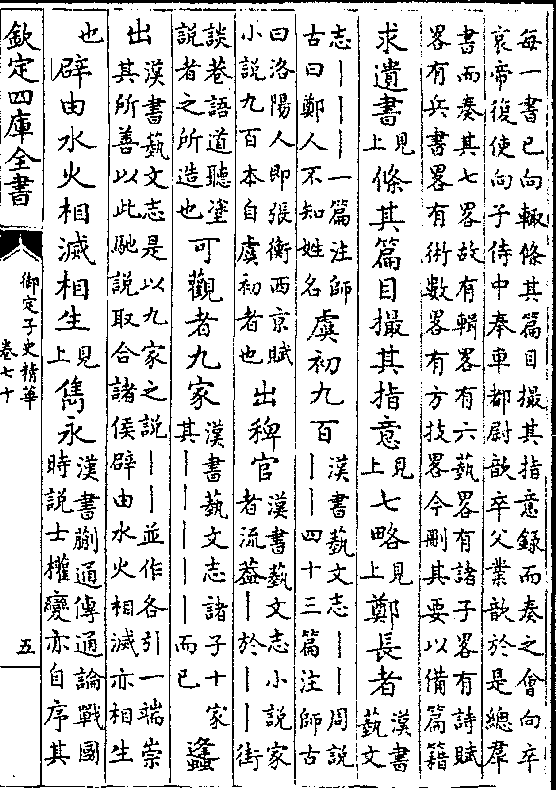 每一書已向輙條其篇目撮其指意録而奏之會向卒
哀帝復使向子侍中奉車都尉歆卒父業歆於是總羣
書而奏其七畧故有輯畧有六藝畧有諸子畧有詩賦
畧有兵書畧有術數畧有方技畧今刪其要以備篇籍
求遺書見上條其篇目撮其指意見上七略見上鄭長者漢書藝文
志｜｜｜一篇注師古曰鄭人不知姓名虞初九百漢書藝文志｜｜周說｜｜四十三篇注師古
曰洛陽人即張衡西京賦小說九百本自虞初者也出稗官漢書藝文志小說家者流葢｜於｜｜街
談巷語道聽塗說者之所造也可觀者九家漢書藝文志諸子十家其｜｜｜｜｜而已蠭
出漢書藝文志是以九家之說｜｜並作各引一端崇其所善以此馳說取合諸侯辟由水火相滅亦相生
也辟由水火相滅相生見上雋永漢書蒯通傳通論戰國時說士權變亦自序其
欽定四庫全書
御定子史精華
卷七十
五